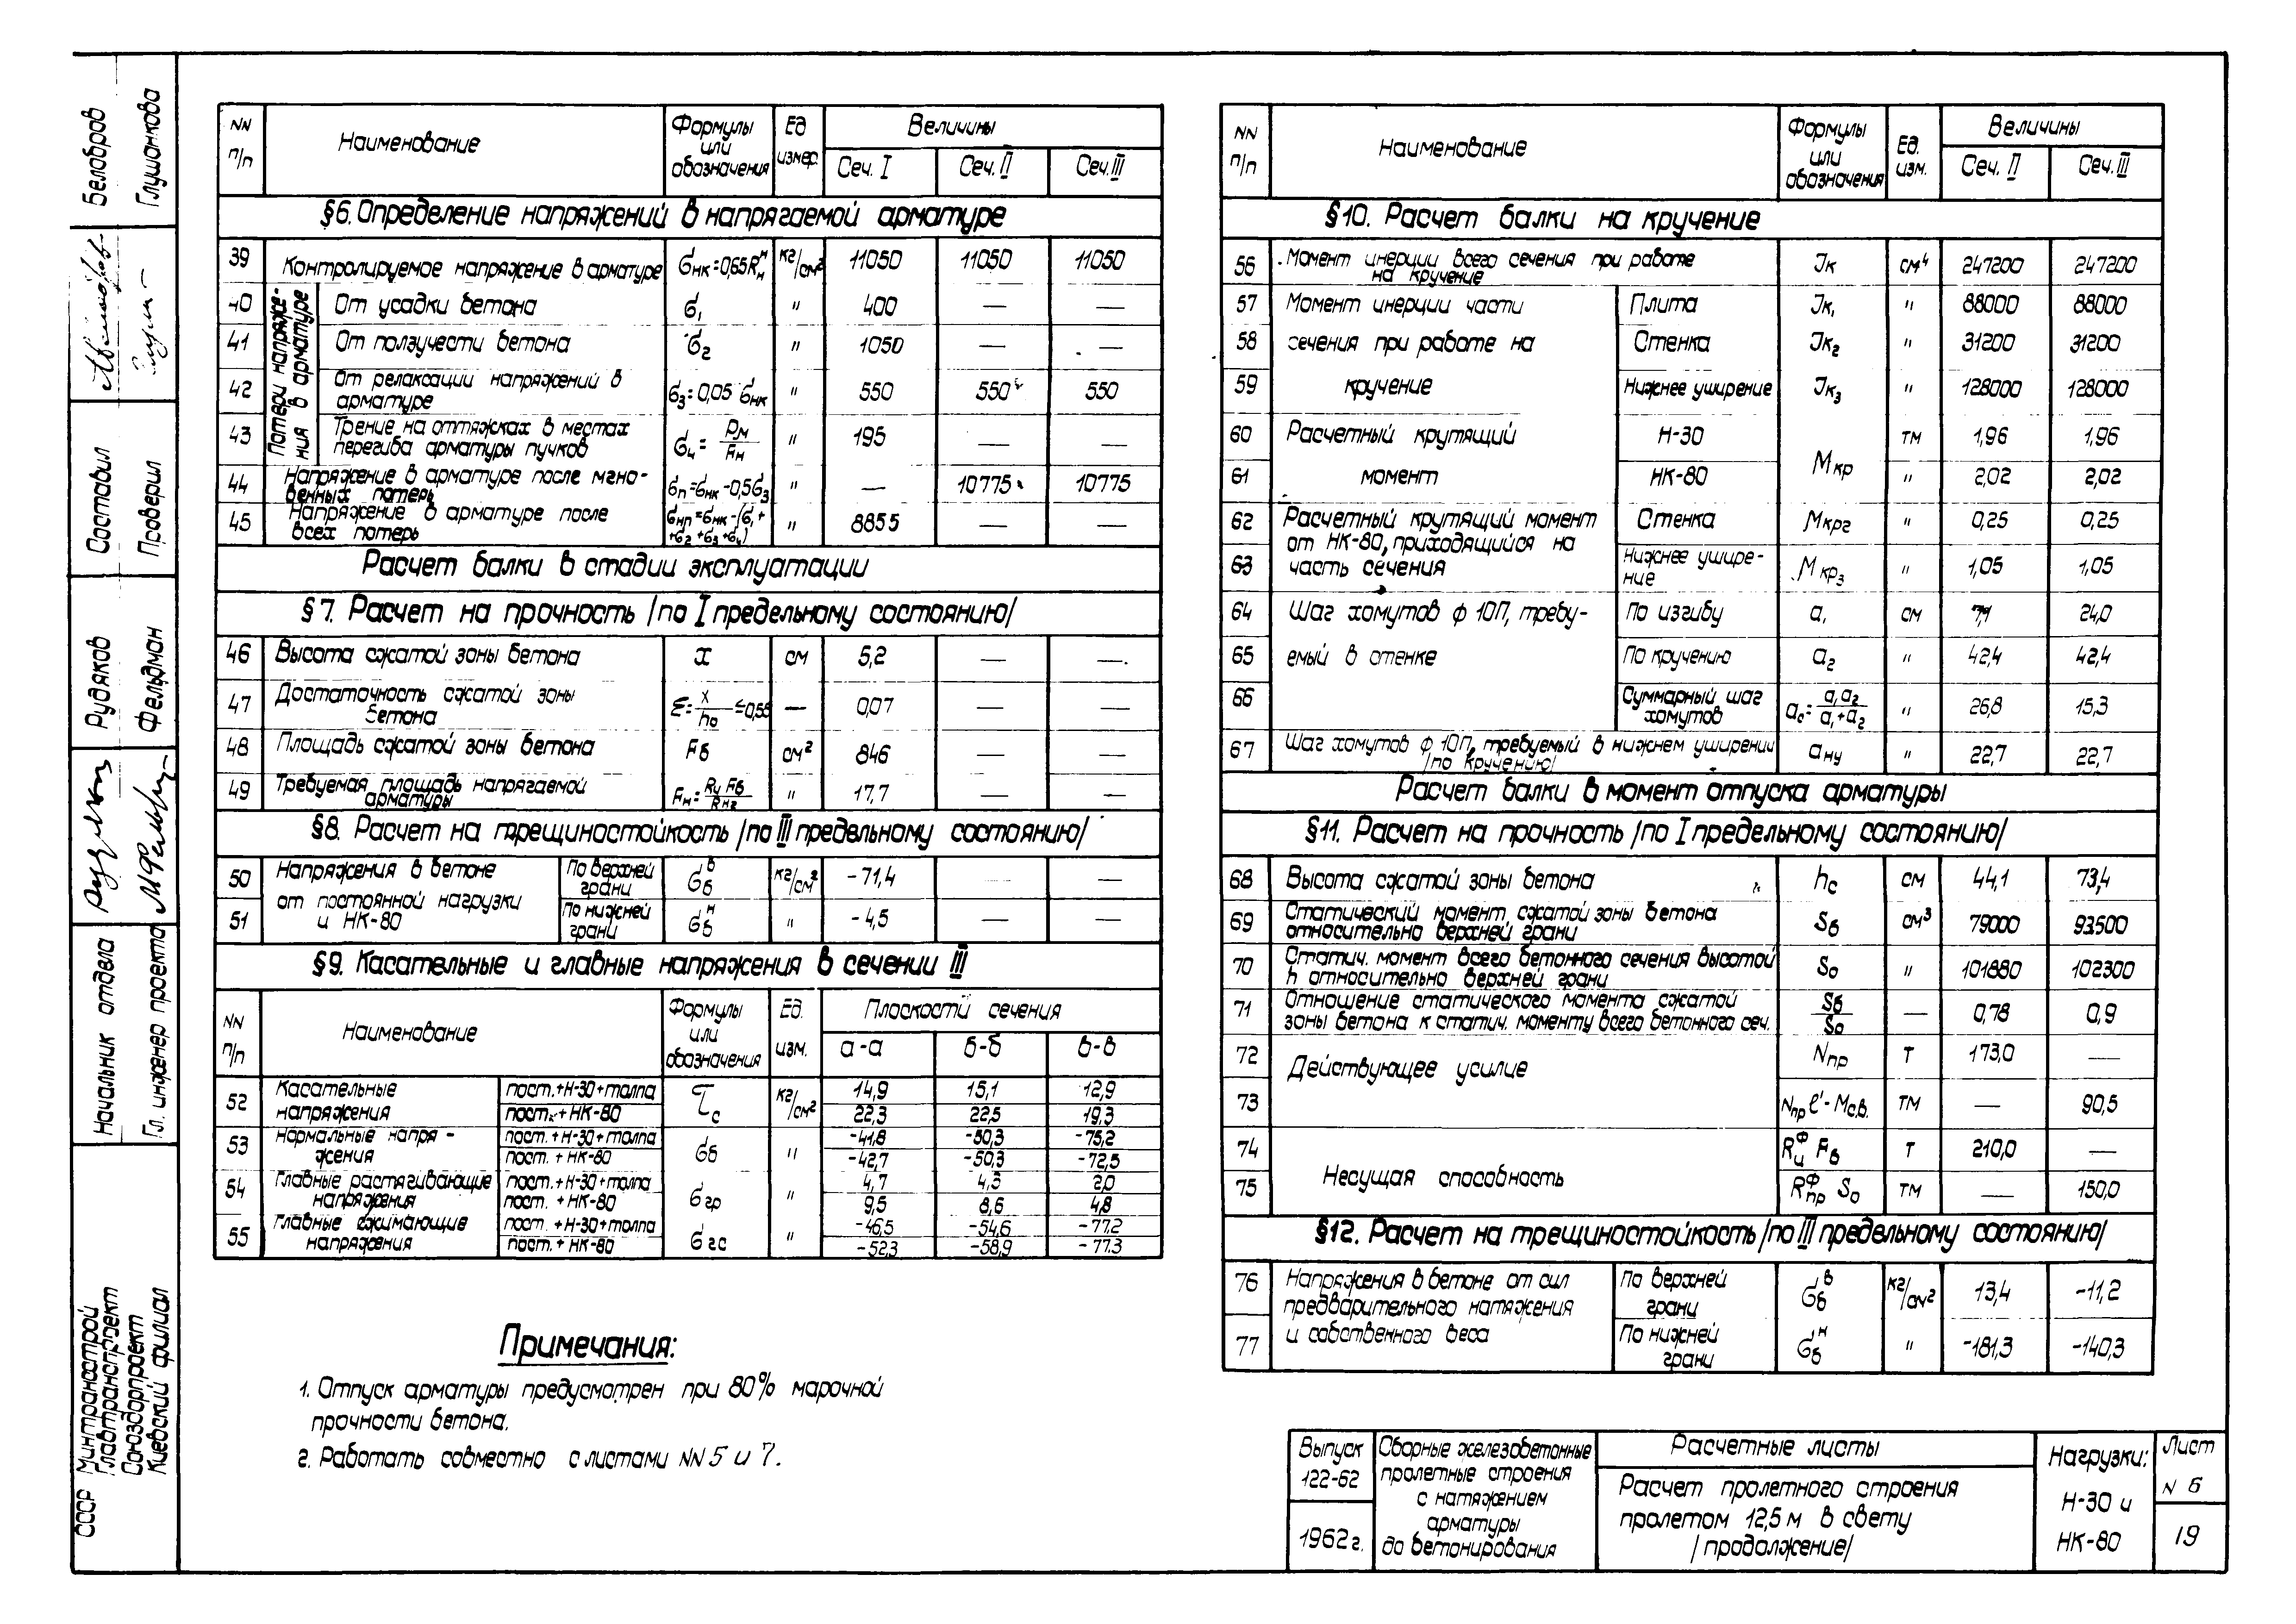 Белобров
Глушанкова
Составил
Проверил
Рудяков
Фельдман
Начальник отдела
Гл. инженер проекта
СССР Минтрансстрой
Главтранспроект
Союздорпроект
Киевский филиал
NN п/п | Наименование | Формулы или обозначения | Ед измер. | Величины
Сеч. I | Сеч. II | Сеч. III
§6. Определение напряжений в напрягаемой арматуре
39 | Контролируемое напряжение в арматуре | σнк=0,65Rнᴴ | кг/см² | 11050 | 11050 | 11050
Потери напряжения в арматуре
40 | От усадки бетона | σ₁ | " | 400 | — | —
41 | От ползучести бетона | σ₂ | " | 1050 | — | —
42 | От релаксации напряжений в арматуре | σ₃=0,05 σнк | " | 550 | 550 | 550
43 | Трение на оттяжках в местах перегиба арматуры пучков | σ₄ = Рм/Fн | " | 195 | — | —
44 | Напряжение в арматуре после мгновенных потерь | σп=σнк-0,5σ₃ | " | — | 10775 | 10775
45 | Напряжение в арматуре после всех потерь | σнп=σнк-(σ₁+ +σ₂+σ₃+σ₄) | " | 8855 | — | —
Расчет балки в стадии эксплуатации
§7. Расчет на прочность /по I предельному состоянию/
46 | Высота сжатой зоны бетона | x | см | 5,2 | — | —
47 | Достаточность сжатой зоны бетона | Σ= x/h₀ ≤0,55 | — | 0,07 | — | —
48 | Площадь сжатой зоны бетона | Fб | см² | 846 | — | —
49 | Требуемая площадь напрягаемой арматуры | Fн= Rи Fб/Rн2 | " | 17,7 | — | —
§8. Расчет на трещиностойкость /по III предельному состоянию/
50 | Напряжения в бетоне от постоянной нагрузки и НК-80 | По верхней грани | σбᴮ | кг/см² | -71,4 | — | —
51 | По нижней грани | σбᴴ | " | -4,5 | — | —
§9. Касательные и главные напряжения в сечении III
NN п/п | Наименование | Формулы или обозначения | Ед. изм. | Плоскости сечения
а-а | б-б | в-в
52 | Касательные напряжения | пост.+Н-30+толпа | τс | кг/см² | 14,9 | 15,1 | 12,9
пост.+НК-80 | 22,3 | 22,5 | 19,3
53 | Нормальные напряжения | пост.+Н-30+толпа | σб | " | -41,8 | -50,3 | -75,2
пост.+НК-80 | -42,7 | -50,3 | -72,5
54 | Главные растягивающие напряжения | пост.+Н-30+толпа | σгр | " | 4,7 | 4,3 | 2,0
пост.+НК-80 | 9,5 | 8,6 | 4,8
55 | Главные сжимающие напряжения | пост.+Н-30+толпа | σгс | " | -46,5 | -54,6 | -77,2
пост.+НК-80 | -52,3 | -58,9 | -77,3
Примечания:
1. Отпуск арматуры предусмотрен при 80% марочной
прочности бетона.
2. Работать совместно с листами NN 5 и 7.
NN п/п | Наименование | Формулы или обозначения | Ед. изм. | Величины
Сеч. II | Сеч. III
§10. Расчет балки на кручение
56 | Момент инерции всего сечения при работе на кручение | Jк | см⁴ | 247200 | 247200
57 | Момент инерции части | Плита | Jк₁ | " | 88000 | 88000
58 | сечения при работе на | Стенка | Jк₂ | " | 31200 | 31200
59 | кручение | Нижнее уширение | Jк₃ | " | 128000 | 128000
60 | Расчетный крутящий | Н-30 | Мкр | тм | 1,96 | 1,96
61 | момент | НК-80 | " | 2,02 | 2,02
62 | Расчетный крутящий момент от НК-80, приходящийся на часть сечения | Стенка | Мкр2 | " | 0,25 | 0,25
63 | Нижнее уширение | Мкр₃ | " | 1,05 | 1,05
64 | Шаг хомутов ф 10П, требу- | По изгибу | а₁ | см | 24,0
65 | емый в стенке | По кручению | а₂ | " | 42,4 | 42,4
66 | Суммарный шаг хомутов | ас= а₁а₂/а₁+а₂ | " | 26,8 | 15,3
67 | Шаг хомутов ф 10П, требуемый в нижнем уширении /по кручению/ | ану | " | 22,7 | 22,7
Расчет балки в момент отпуска арматуры
§11. Расчет на прочность /по I предельному состоянию/
68 | Высота сжатой зоны бетона | hс | см | 44,1 | 73,4
69 | Статический момент сжатой зоны бетона относительно верхней грани | Sб | см³ | 79000 | 93500
70 | Статич. момент всего бетонного сечения высотой h относительно верхней грани | S₀ | " | 101880 | 102300
71 | Отношение статического момента сжатой зоны бетона к статич. моменту всего бетонного сеч. | Sб/S₀ | — | 0,78 | 0,9
72 | Действующее усилие | Nпр | т | 173,0 | —
73 | Nпр ℓ'-Мс.в. | тм | — | 90,5
74 | Несущая способность | Rиᶲ Fб | т | 210,0 | —
75 | Rпрᶲ S₀ | тм | — | 150,0
§12. Расчет на трещиностойкость /по III предельному состоянию/
76 | Напряжения в бетоне от сил предварительного натяжения и собственного веса | По верхней грани | σбᴮ | кг/см² | 13,4 | -11,2
77 | По нижней грани | σбᴴ | " | -181,3 | -140,3
Выпуск 122-62
1962г.
Сборные железобетонные
пролетные строения
с натяжением
арматуры
до бетонирования
Расчетные листы
Расчет пролетного строения
пролетом 12,5м в свету
/продолжение/
Нагрузки:
Н-30 и
НК-80
Лист
N 6
19